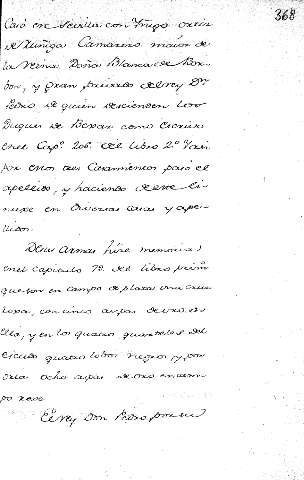 368
Casó en Sevilla con Yñigo Ortiz
de Zuñiga Camarero maior de
la Reina Doña Blanca de Bor
bon, y gran privado del rey Dn
Pedro de quien descienden los
Duques de Bexar como escrivi
en el Capº 206. del libro 2º
Por estos tres Casamientos pasó el
apellido, y haciendo
en diversas casas y ape-
llidos.
De sus Armas hize memoria
en el capitulo 79. del libro
que son en campo de plata una cruz
roxa, con cinco aspas de oro en
ella, y en los quatro quarteles del
escudo quatro lobos negros, y por
orla ocho aspas de oro en cam
po roxo
El rey Don Pedro